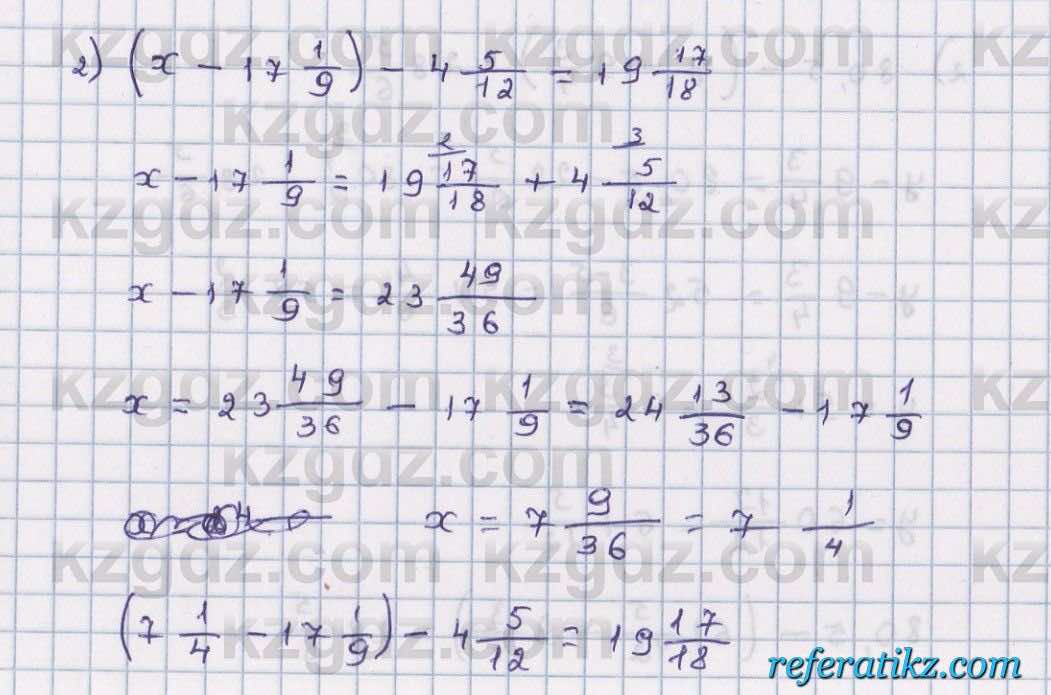 2) (x − 17 1/9) − 4 5/12 = 19 17/18
x − 17 1/9 = 19 17/18 (2) + 4 5/12 (3)
x − 17 1/9 = 23 49/36
x = 23 49/36 − 17 1/9 = 24 13/36 − 17 1/9
x = 7 9/36 = 7 1/4
(7 1/4 − 17 1/9) − 4 5/12 = 19 17/18
kzgdz.com
referatikz.com